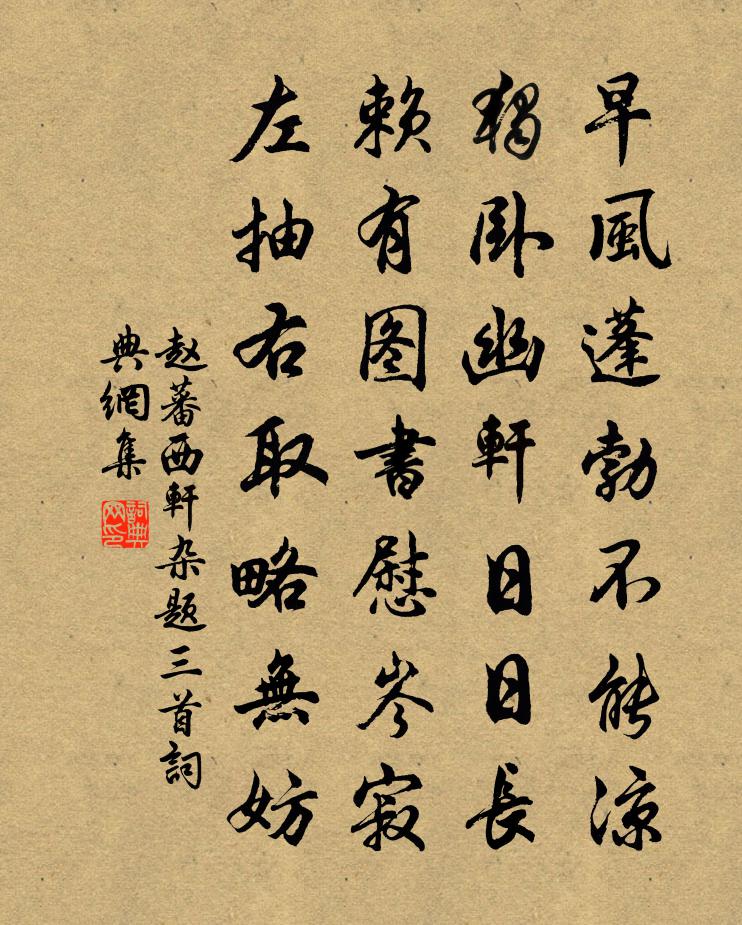 早風蓬勃不能涼
獨卧幽軒日日長
賴有图書慰岑寂
左抽右取略無妨
赵蕃西軒杂题三首詞
典網集
詞典
网印